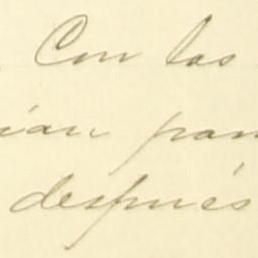 Con las
ían par
después